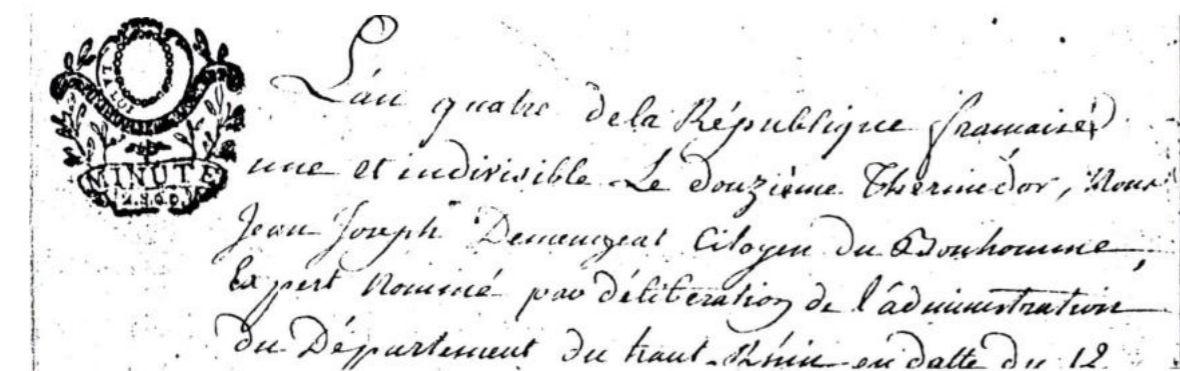 LA LOI
MINUTE
L'an quatre de la République françaisé
une et indivisible Le Douzième Thermidor, Nous
Jean Joseph Demengeat Citoyen du Bonhomme,
Expert Nommé par déliberation de l'administration
du Département du haut-Rhin en datte du 12